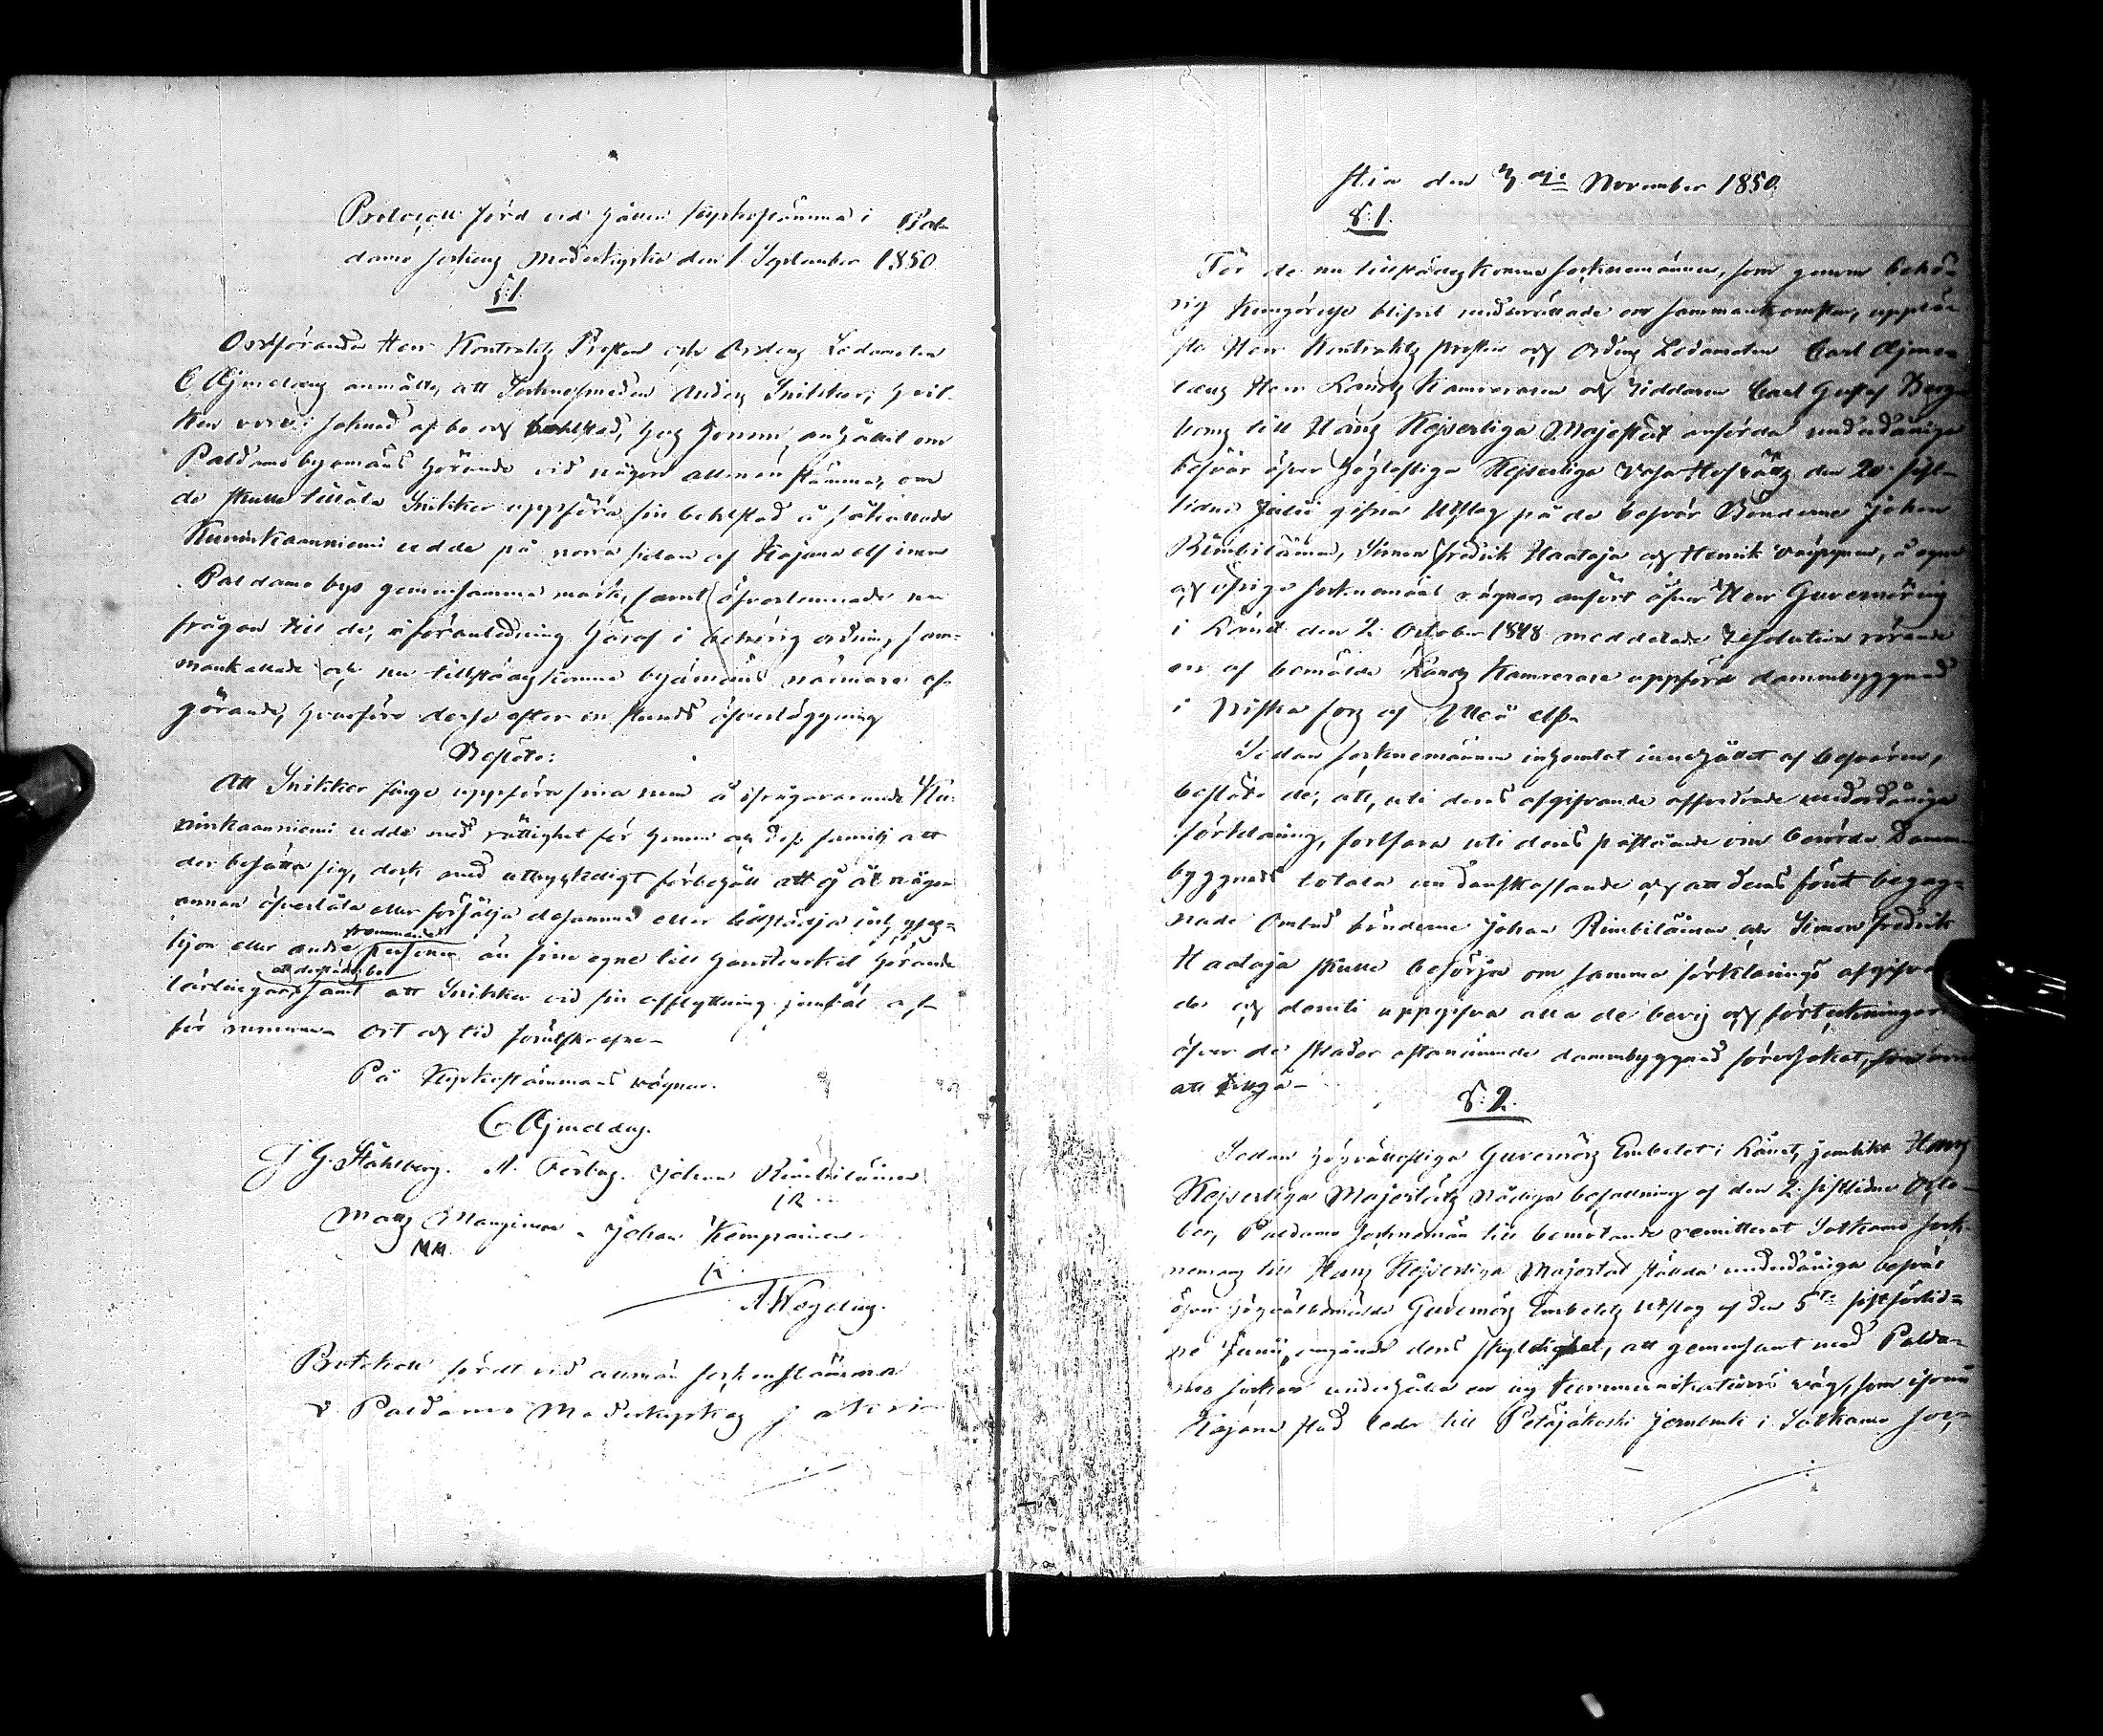 Protocoll förd vid hållen kyrkostämma i Pal-
damo sockens Moderkyrka den 1 September 1850
§:1.
Ordföranden Herr Kontrakts Prosten och Ordens Ledamoten
C Ajmelæus anmälte, att Sockne smeden Anders Snikker, hvil-
ken vore i saknad af bo och bohlstad, hos honom anhållit om
Paldamo byamäns hörande vid någon allmän stämma, om
de skulle tillåta Snikker uppföra sin bohlstad å så kallade
Kuninkaanniemi udde på norra sidan af Kajana elf inom
Paldamo bys gemensamma mark, samt öfverlemnade nu
frågan till de, i föranledning häraf i behörig ordning sam-
mankallade och nu tillstädeskomne byamäns närmare af-
görande, hvarföre desse efter en stunds öfverläggning
Beslöto:
Att Snikker finge uppföra sina rum å ifrågavarande Ku-
ninkaanniemi udde med rättighet för honom och dess familj att
der besätta sig, dock med uttryckeligt förbehåll att ej åt någon
annan öfverlåta eller försälja desamma eller tillstädja inhyses-
hjon eller andre främmande personer än sine egne till handtverket hörande
lärlingar att derstädes bo samt att Snikker vid sin afflyttning
för rummen ort och tid förutskrefne
På Kyrkostämmans vägnar.
C. Ajmelæus.
J G. Ståhlberg. A. Forbus. Johan Rimbiläinen
I R
Matts Manginen Johan Kemppainen
MM.
K
A. Wegelius.
Protokoll fördt vid allmän sockenstämma
i Paldamo Moderkyrkas sakris-
tia den November 1850.
§:1.
För de nu tillstädeskomne socknemännen, som genom behö-
rig kungörelse blifvit underrättade om sammankomsten, upplä-
ste Herr Kontrakts prosten och Ordens Ledamoten Carl Ajme-
læus Herr Lands Kamreraren och riddaren Carl Gustaf Berg-
boms till Hans Kejserliga Majestät anförda underdåniga
besvär öfver Höglofliga Kejserliga Vasa Hofrätts den 20 sist-
lidne Julii gifna Utslag på de besvär Bönderne Johan
Rimbiläinen, Simon Fredrik Haataja och Henrik Väyrynen, å egne
och öfrige socknemäns vägnar anfört öfver Herr Guvernörens
i Länet den 2 October 1848 meddelade Resolution rörande
en af bemälde Lands Kamrerare uppförd dammbyggnad
i Niska fors af Uleå elf.
Sedan socknemännen inhemtat innehållet af besvären,
beslöto de, att, uti deras afgifvande affordrade underdåniga
förklaring, fortfara uti deras påstående om berörde Damm-
byggnads totala undanskaffande och att deras förut begag-
nade Ombud bönderne Johan Rimbiläinen och Simon Fredrik
Haataja skulle besörja om samma förklarings afgifvan-
de och deruti uppgifva alla de bevis och förteckningar
öfver de skador oftanämnde dammbyggnad förorsakat,
att tillgå
§:2.
Sedan Högvällofliga Guvernörs Embetet i Länet, jemlikt Hans
Kejserliga Majestäts Nådiga befallning af den 2 sistlidne Octo-
ber, Paldamo Sockneman till bemötande remitterat Sotkamo sock-
nemans till Hans Kejserliga Majestät stälda underdåniga besvär
öfver högvälbemälde Guvernörs Embetets Utslag af den 5te sistförlid-
ne Junii, angående deras skyldighet, att gemensamt med Palda-
mo socken underhålla en ny kommunikations väg, som ifrån
Kajana stad leder till Petäjäkoski jernbruk i Sotkamo soc-